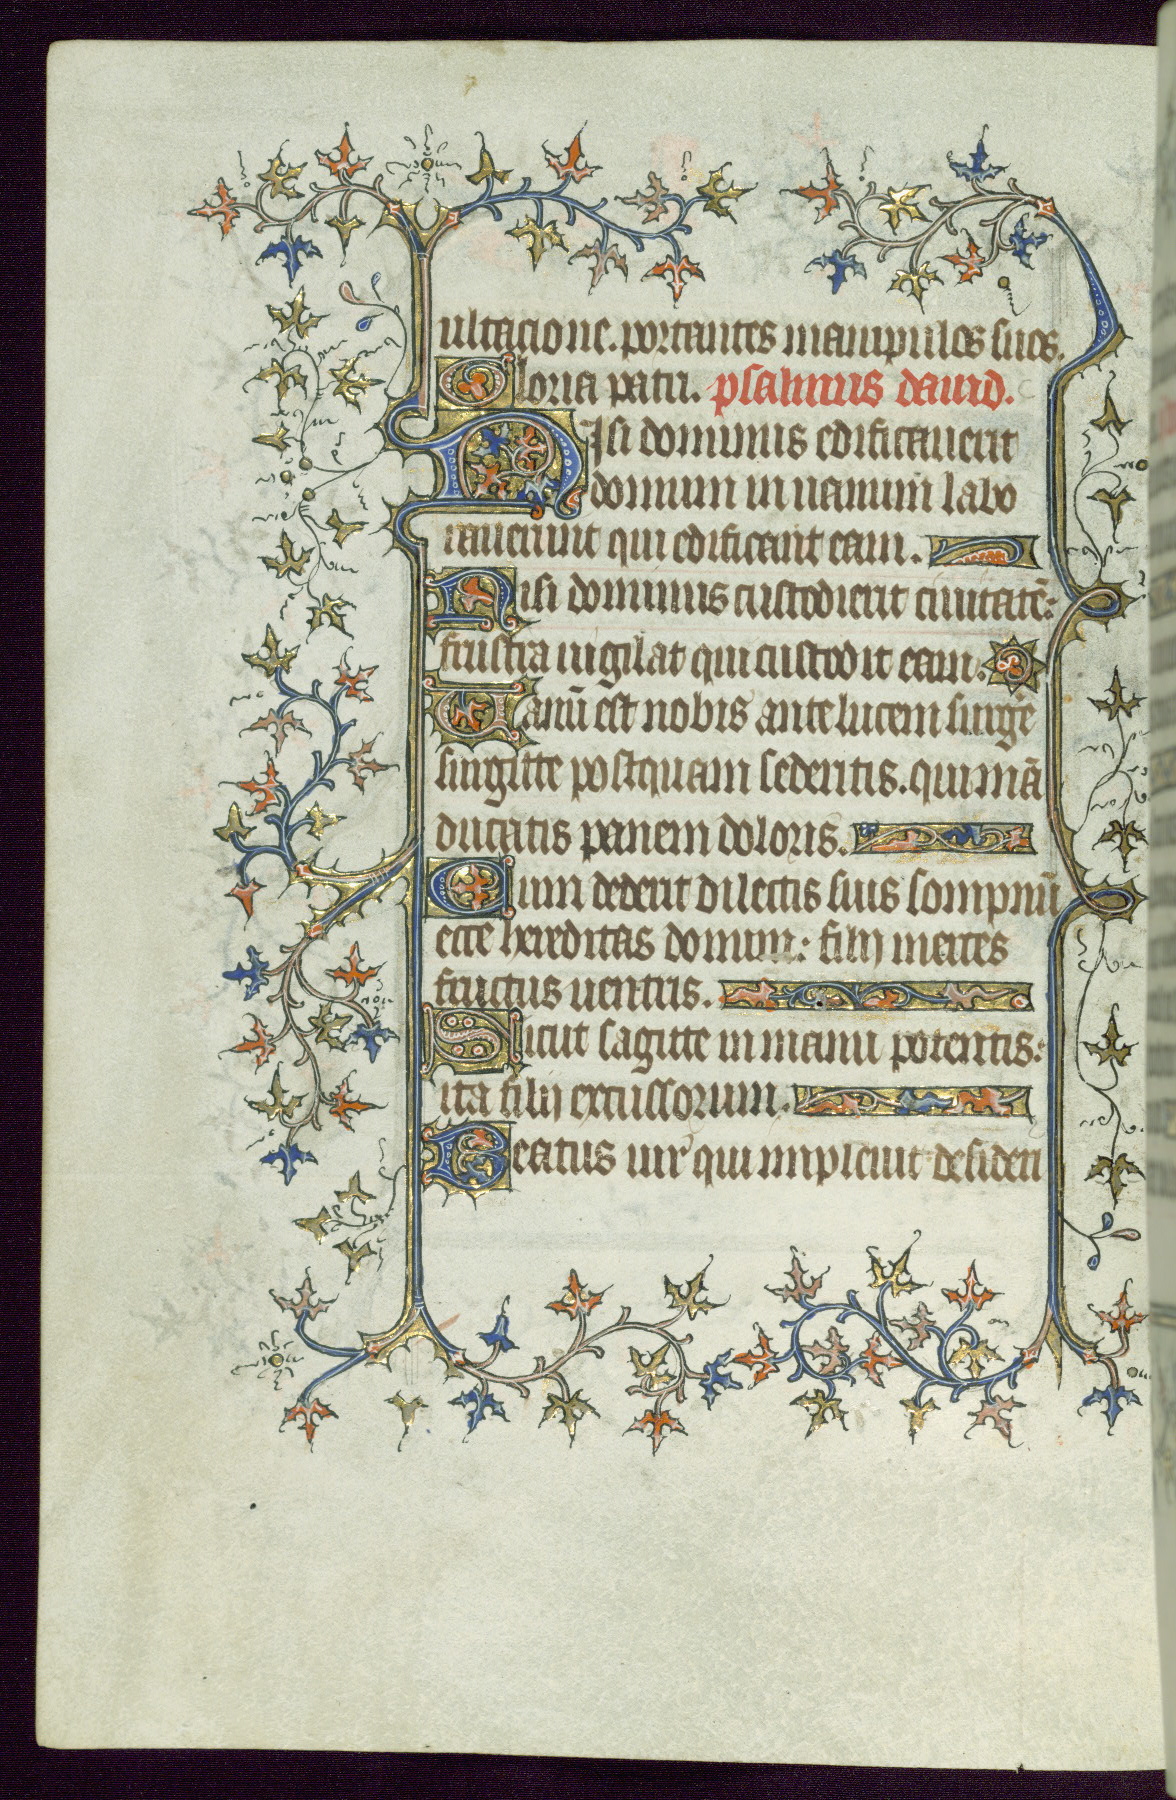 ultacione. portantes manipulos suos.
Gloria patri. psalmus dauid.
Nisi dominus edificauerit
domum in uanum labo
rauerunt qui edificant eam.
Nisi dominus custodierit ciuitatē:
frustra uigilat qui custodit eam.
Uanū est nobis ante lucem surge
surgitte postquam sederitis. qui mā
ducatis panem doloris.
Cum dederit dilectis suis sompnū
ecce hereditas domini: filij merces
fructus uentris.
Sicut sagitte in manu potentis:
ita filij excussorum.
Beatus uir qui impleuit desideri